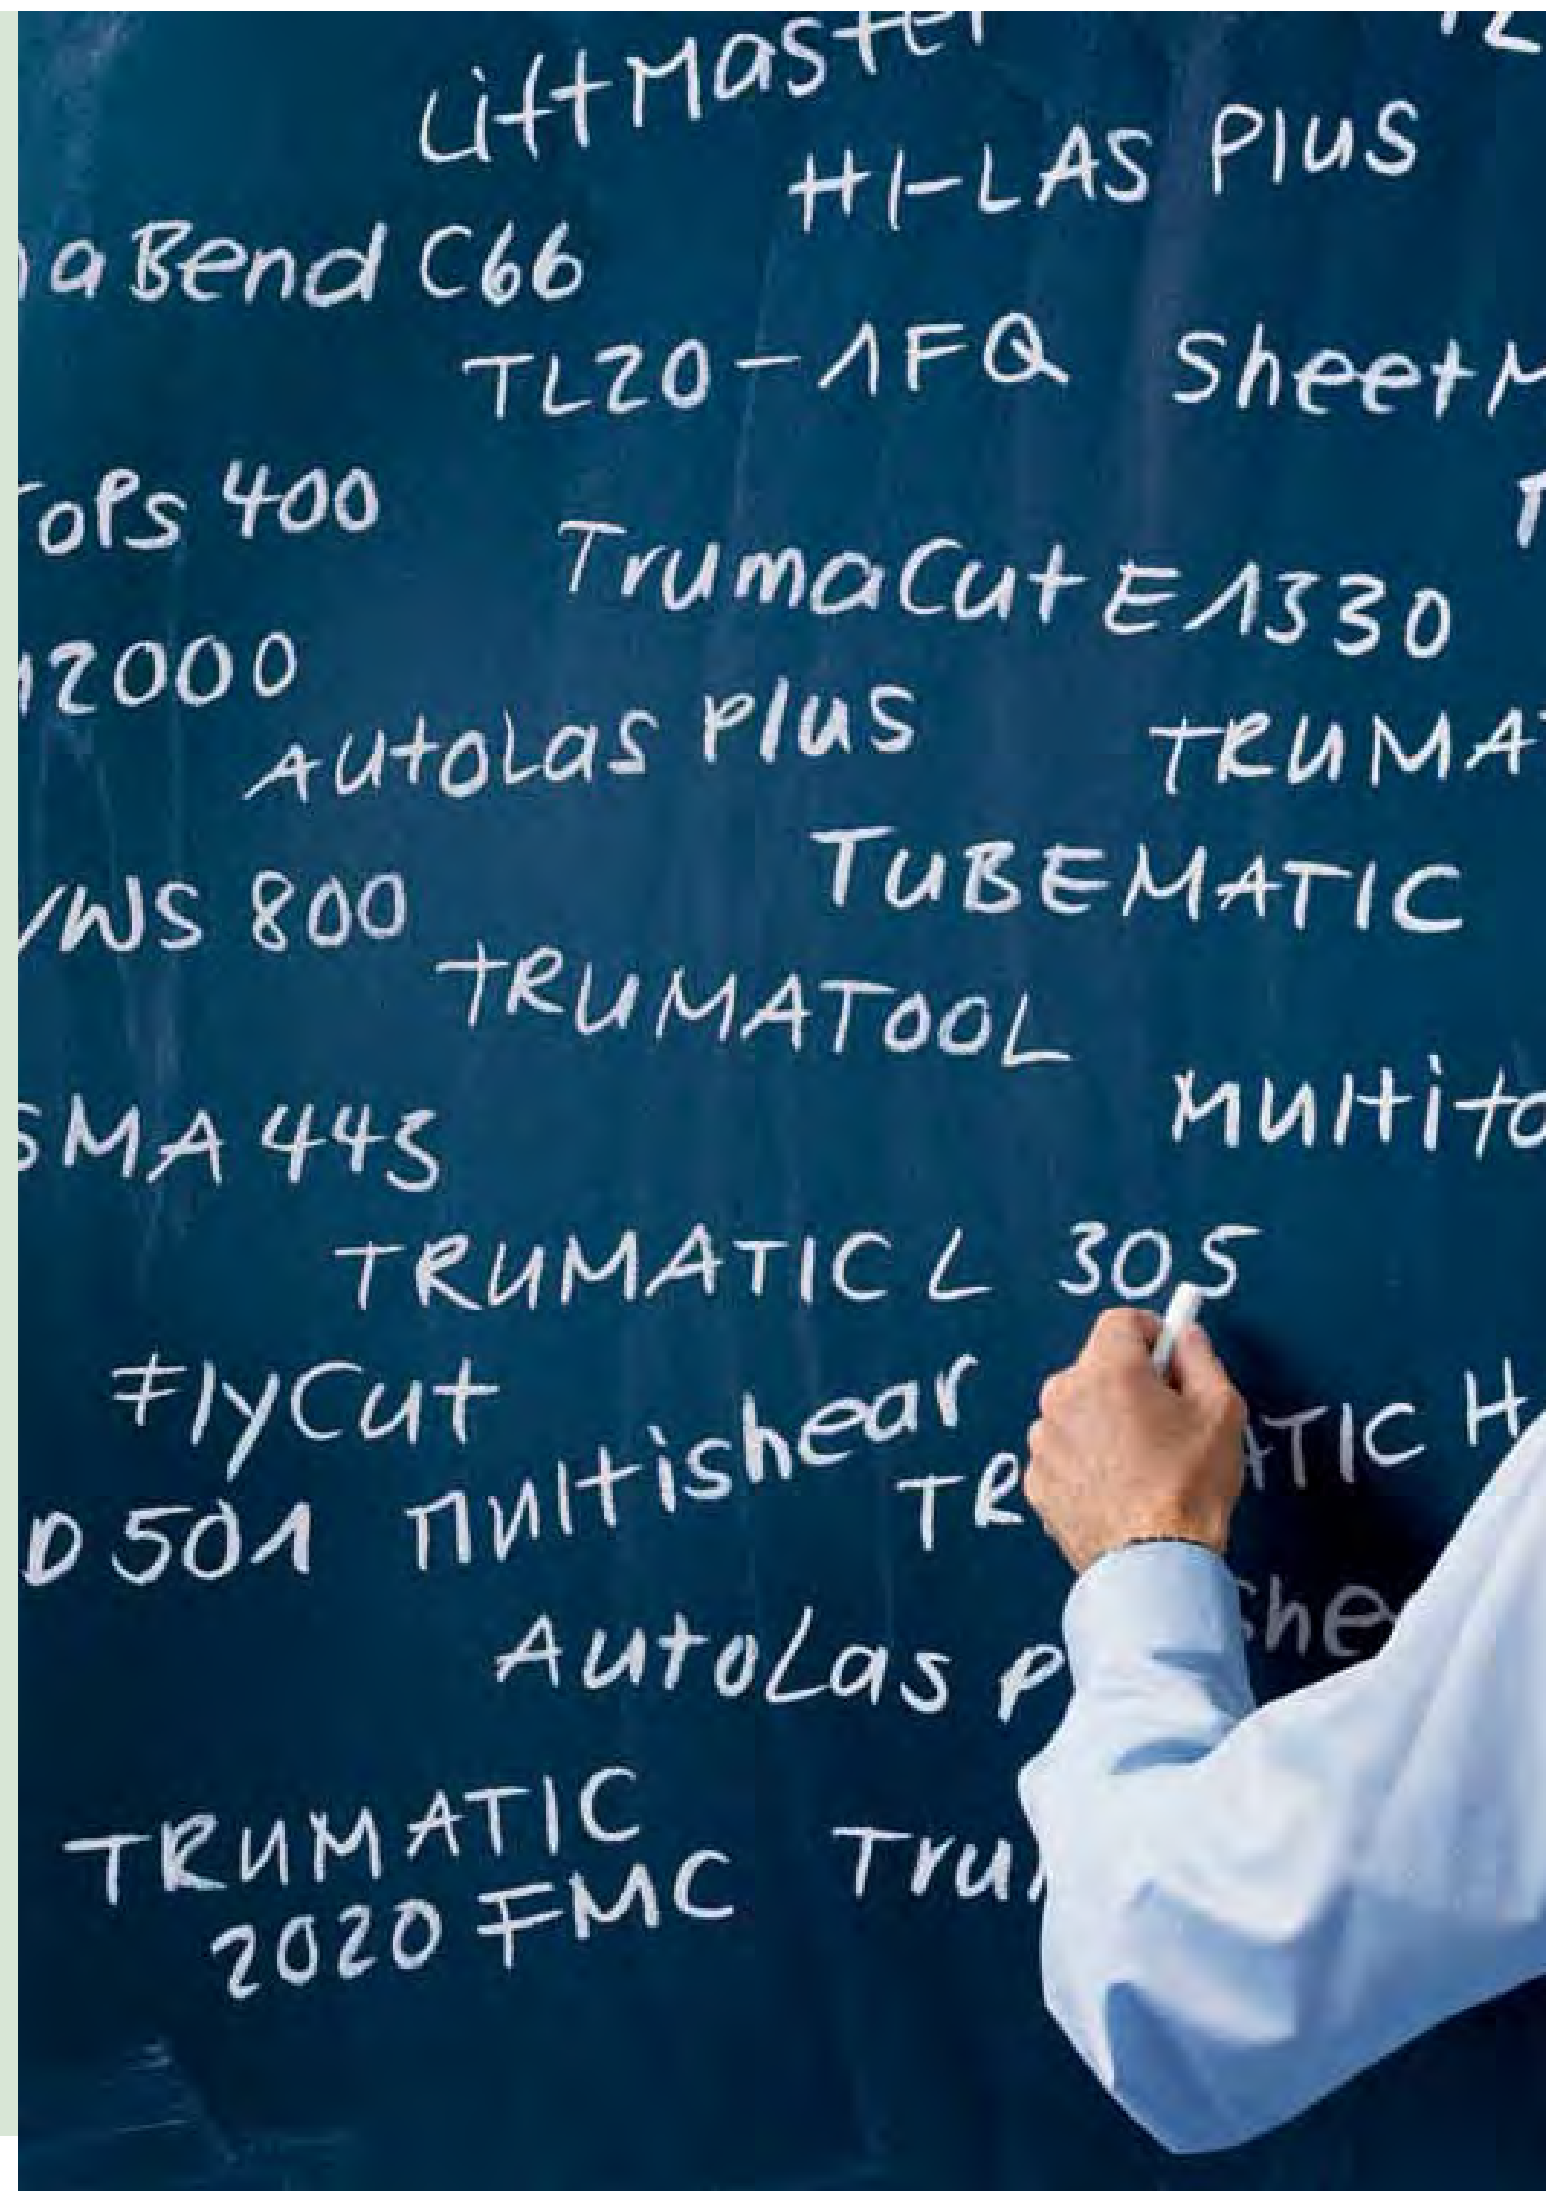 LiftMaster
HI-LAS Plus
aBend C66
TL20-1FQ SheetM
oPs 400
TrumaCut E1330
12000
AutoLas Plus TRUMAT
TUBEMATIC
WS 800
TRUMATOOL
SMA 443 Multito
TRUMATIC L 305
FlyCut Multishear
TR ATIC H
D 501
She
AutoLas P
TRUMATIC
2020 FMC Tru